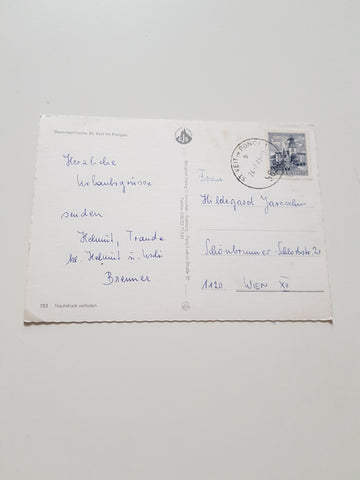 Sommerfrische St. Veit im Pongau
Herzliche
Urlaubsgrüsse
senden
Helmut, Traude
Helmut u. Uschi
Brenner
703 Nachdruck verboten
ST. VEIT IM PONGAU
Frau
Hildegard
Schönbrunner-Schloßstr.
1120 WIEN